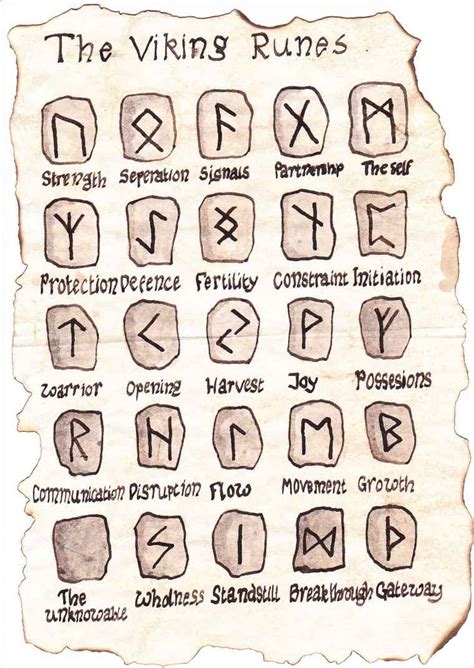 The Viking Runes
ᚢ ᛟ ᚨ ᚷ ᛗ
Strength Seperation Signals Partnership The self
ᛉ ᛇ ᛝ ᚾ ᛈ
Protection Defence Fertility Constraint Initiation
ᛏ ᚲ ᛃ ᚹ ᚠ
Warrior Opening Harvest Joy Possesions
ᚱ ᚺ ᛚ ᛖ ᛒ
Communication Disruption Flow Movement Growth
ᛋ ᛁ ᛞ ᚦ
The Wholness Standstill Breakthrough Gateway
unknowable